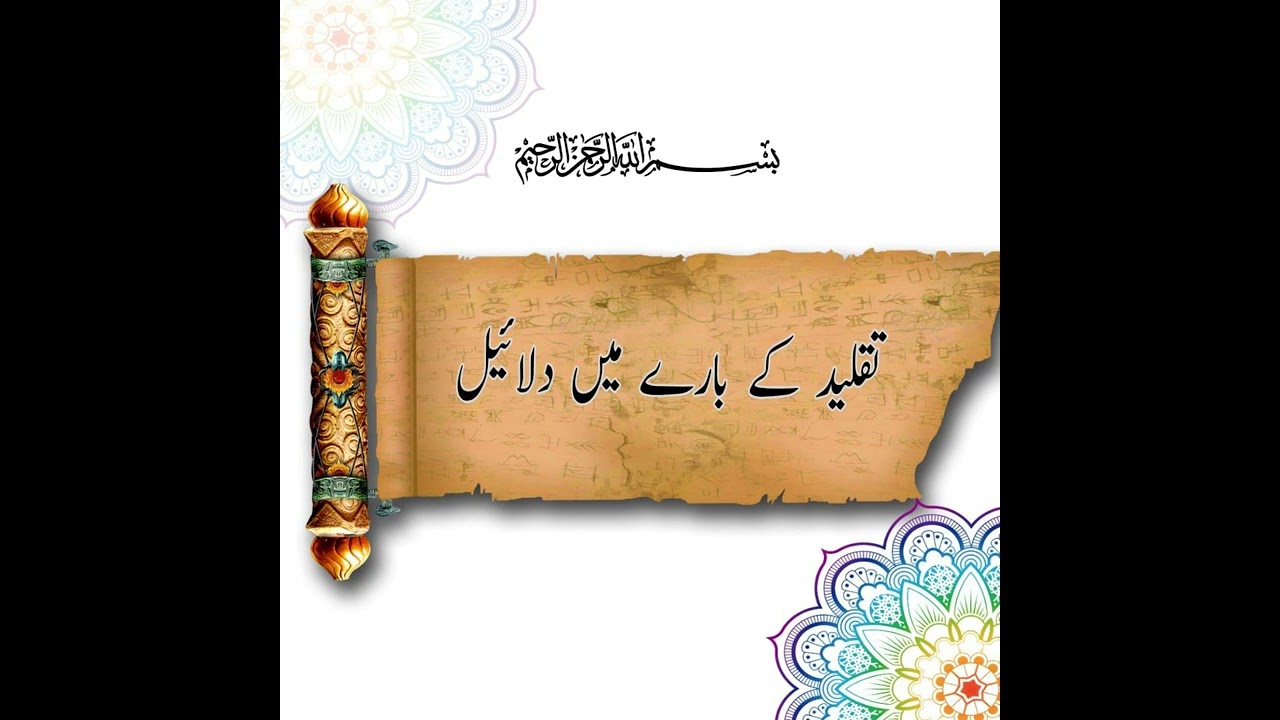 بسم الله الرحمن الرحیم
تقلید کے بارے میں دلائیل